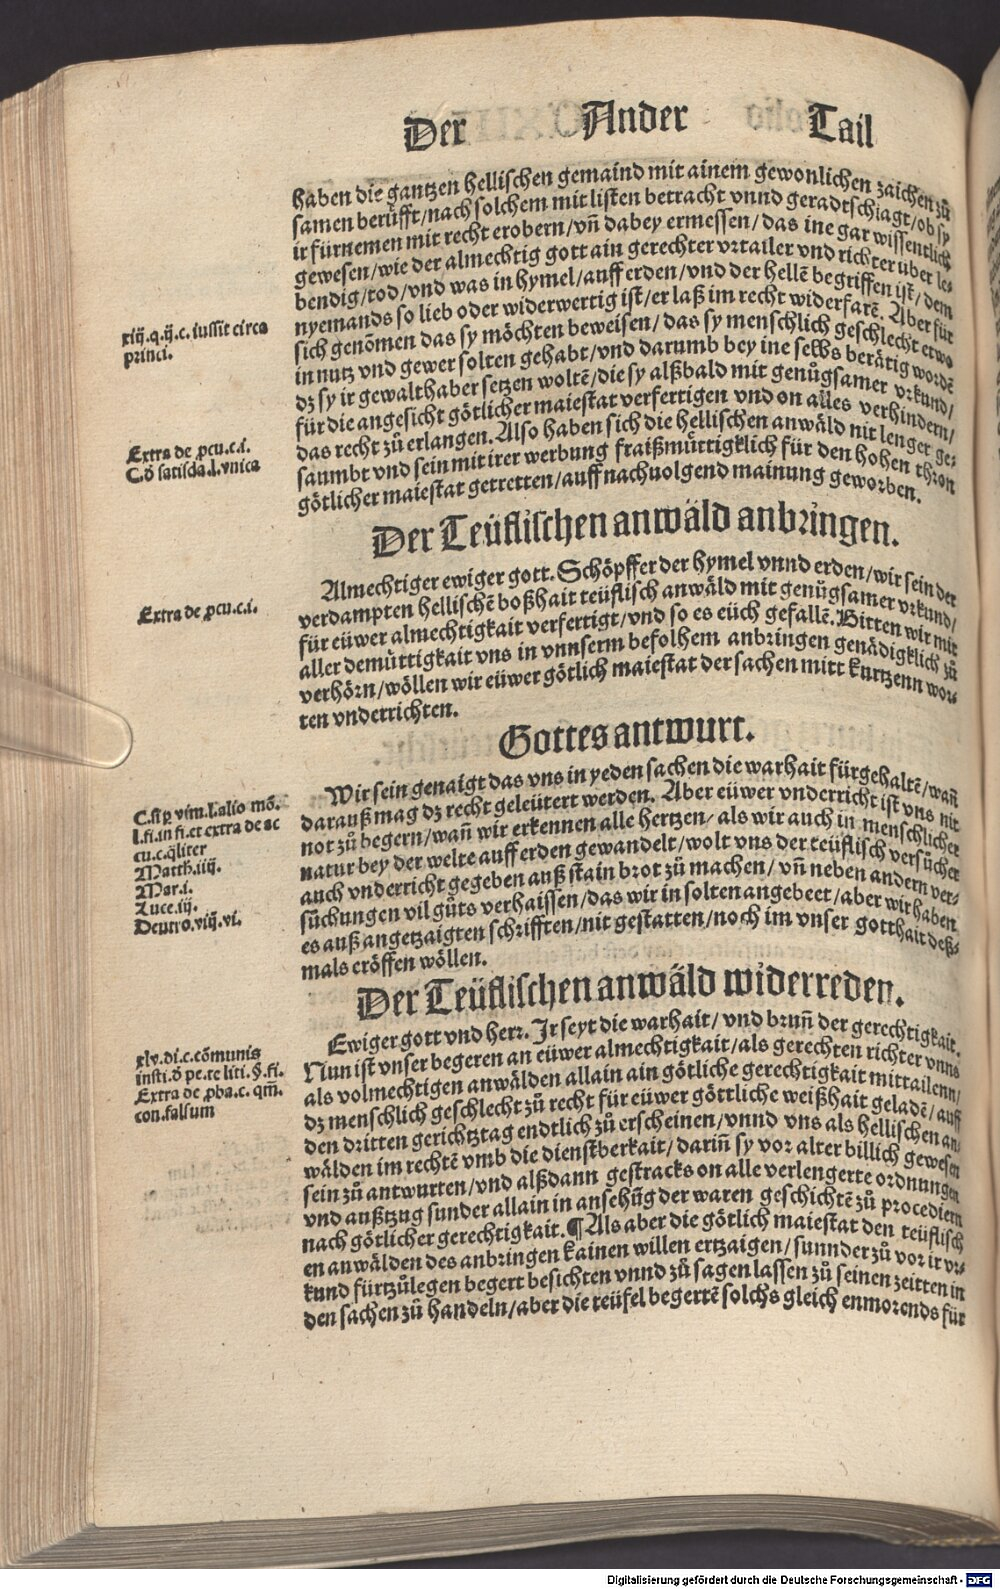 Der Ander Tail
haben die gantzen hellischen gemaind mit ainem gewonlichen zaichen zů
samen berůfft/nach solchem mit listen betracht vnnd geradtschlagt/ob sy
ir fürnemen mit recht erobern/vñ dabey ermessen/das ine gar wissentlich
gewesen/wie der almechtig gott ain gerechter vrtailer vnd richter über le-
bendig/tod/vnd was in hymel/auff erden/vnd der hellẽ begriffen ist/dem
nyemands so lieb oder widerwertig ist/er laß im recht widerfarẽ. Aber für
sich genõmen das sy möchten beweisen/das sy menschlich geschlecht etwo
in nutz vnd gewer solten gehabt/vnd darumb bey ine selbs berätig wordẽ
dz sy ir gewalthaber setzen woltẽ/die sy alßbald mit genůgsamer vrkund/
für die angesicht götlicher maiestat verfertigen vnd on alles verhindern/
das recht zů erlangen. Also haben sich die hellischen anwäld nit lenger ge-
saumbt vnd sein mit irer werbung fraißmüttigklich für den hohen thron
götlicher maiestat getretten/auff nachuolgend mainung geworben.
xiij.q.ij.c.iussit circa
princi.
Extra de ꝓcu.c.i.
C.õ satisda.l.vnica
Der Teüflischen anwäld anbringen.
Almechtiger ewiger gott. Schöpffer der hymel vnnd erden/wir sein der
verdampten hellischẽ boßhait teüflisch anwäld mit genůgsamer vrkund/
für eüwer almechtigkait verfertigt/vnd so es eüch gefallẽ. Bitten wir mit
aller demüttigkait vns in vnnserm befolhem anbringen genädigklich zů
verhörn/wöllen wir eüwer götlich maiestat der sachen mitt kurtzenn wor-
ten vnderrichten.
Extra de ꝓcu.c.i.
Gottes antwurt.
Wir sein genaigt das vns in yeden sachen die warhait fürgehaltẽ/wañ
darauß mag dz recht geleütert werden. Aber eüwer vnderricht ist vns nit
not zů begern/wañ wir erkennen alle hertzen/als wir auch in menschlicher
natur bey der welte auff erden gewandelt/wolt vns der teüflisch versücher
auch vnderricht gegeben auß stain brot zů machen/vñ neben andern ver-
sůchungen vil gůts verhaissen/das wir in solten angebeet/aber wir haben
es auß angetzaigten schrifften/nit gestatten/noch im vnser gotthait deß-
mals eröffen wöllen.
C.si ꝑ vim.l.alio mõ.
l.fi.in fi.et extra de ac
cu.c.q̃liter
Matth.iiij.
Mar.i.
Luce.iij.
Deutro.viij.vi.
Der Teüflischen anwäld widerreden.
Ewiger gott vnd herr. Ir seyt die warhait/vnd bruñ der gerechtigkait.
Nun ist vnser begeren an eüwer almechtigkait/als gerechten richter vnns
als volmechtigen anwälden allain ain götliche gerechtigkait mittailenn/
dz menschlich geschlecht zů recht für eüwer göttliche weißhait geladẽ/auff
den dritten gerichtztag endtlich zů erscheinen/vnnd vns als hellischen an-
wälden im rechtẽ vmb die dienstberkait/dariñ sy vor alter billich gewesen
sein zů antwurten/vnd alßdann gestracks on alle verlengerte ordnungen
vnd außtzug sunder allain in ansehũg der waren geschichtẽ zů procediern
nach götlicher gerechtigkait. ¶Als aber die götlich maiestat den teüflisch
en anwälden des anbringen kainen willen ertzaigen/sunnder zů vor ir vr-
kund fürtzůlegen begert besichten vnnd zů sagen lassen zů seinen zeitten in
den sachen zů handeln/aber die teüfel begertẽ solchs gleich enmorends für
xlv.di.c.cõmunis
insti.õ pe.te liti.§.fi.
Extra de ꝓba.c.qm̃.
con.falsum
Digitalisierung gefördert durch die Deutsche Forschungsgemeinschaft - DFG